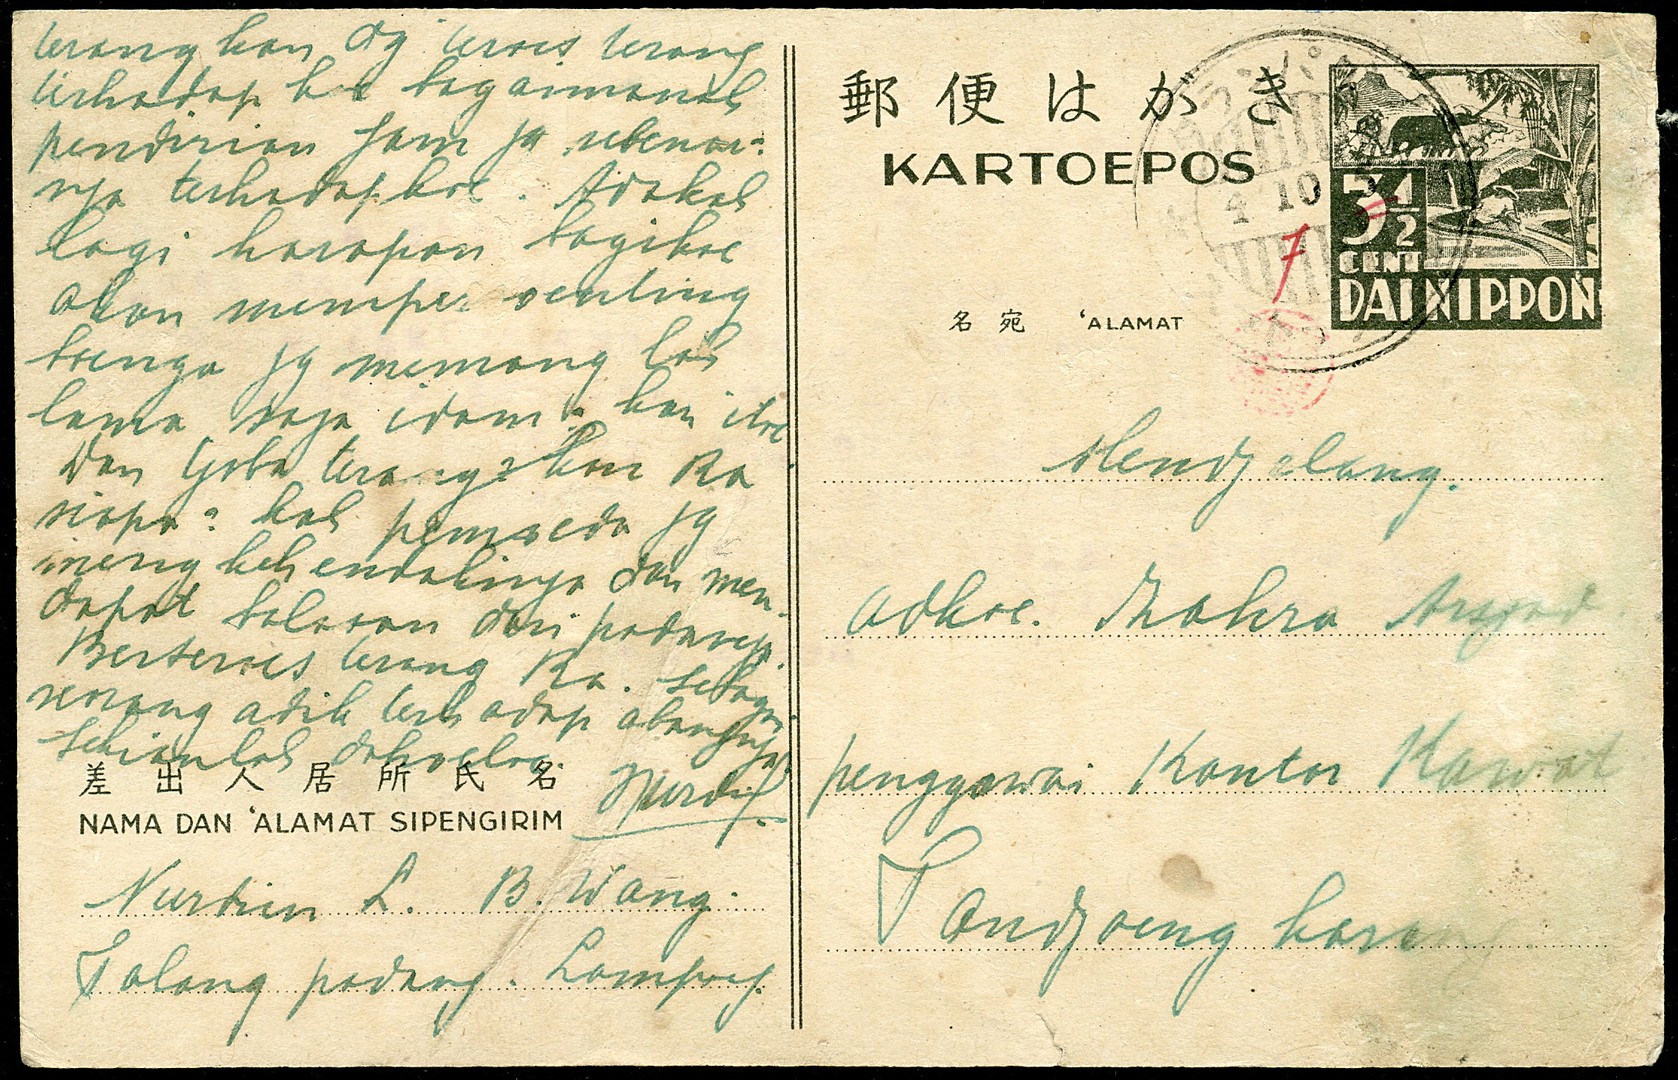 terangkan dg teroes terang
terhadap koe bagaimanakah
pendirian jg sebenar-
nja terhadapkoe. Adakah
lagi harapan bagikoe
akan memper
boenga jg memang lah
lama saja idam2kan itoe
Dan tjoba terangkan Ra
siapa2 kah pemoeda jg
mengkehendakinja dan men-
dapat balasan dari padamoe.
Berteroes terang Ra. sebagai
seorang adik terhadap abangnja
sekianlah dahoeloe.
Nurdin
差出人居所氏名
NAMA DAN 'ALAMAT SIPENGIRIM
Nurdin L. B. Wang.
Talang padang. Lampoeng.
郵便はがき
KARTOEPOS
4 10
7
3 1/2
CENT
DAI NIPPON
名宛 'ALAMAT
Mendjelang.
Adkoe. Zahra
penggawai Kantor Kawat
Tandjoeng karang